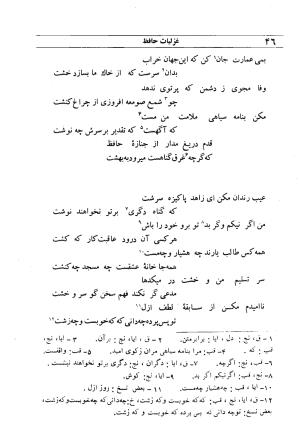 ۴۶ غزلیات حافظ
بمی عمارت جان۱ کن که این جهان خراب
بدان۲ سرست که از خاك ما بسازد خشت
وفا مجوی ز دشمن که پرتوی ندهد
چو۳ شمع صومعه افروزی از چراغ کنشت
مکن بنامه سیاهی ملامت من مست۴
که آگهست۵ که تقدیر بر سرش چه نوشت
قدم دریغ مدار از جنازۀ حافظ
که گرچه۶ غرق گناهست میرود ببهشت
عیب رندان مکن ای زاهد پاکیزه سرشت
که گناه دگری۷ بر تو نخواهند نوشت
من اگر نیکم و گر بد۸ تو برو خود را باش۹
هر کسی آن درود عاقبت کار که کشت
همه کس طالب یارند چه هشیار و چه مست۱۰
همه جا خانۀ عشقست چه مسجد چه کنشت
سر تسلیم من و خشت در میکدها
مدعی گر نکند فهم سخن گو سر و خشت
ناامیدم مکن از سابقۀ لطف ازل۱۱
تو پس پرده چه دانی که که خوبست و چه زشت۱۲
۱- ق، نج: دل، ایا: برابر متن. ۲- ق، ایا، نج: برآن. ۳- ایا، نج،
قب: که. ۴- قب: مرا بنامه سیاهی مران زکوی امید. ۵- قب: واقفست.
۶- ق، نج، قب: اگرچه. ۷- ق، ایا: دگران، نج: دگری بر تو نخواهند نبشت.
۸- نج، قب: اگر نیکم اگر بد. ۹- ایا، نج: کوش.
۱۰- ایا، قب: چه هشیار چه مست. ۱۱- بعض نسخ: روز ازل.